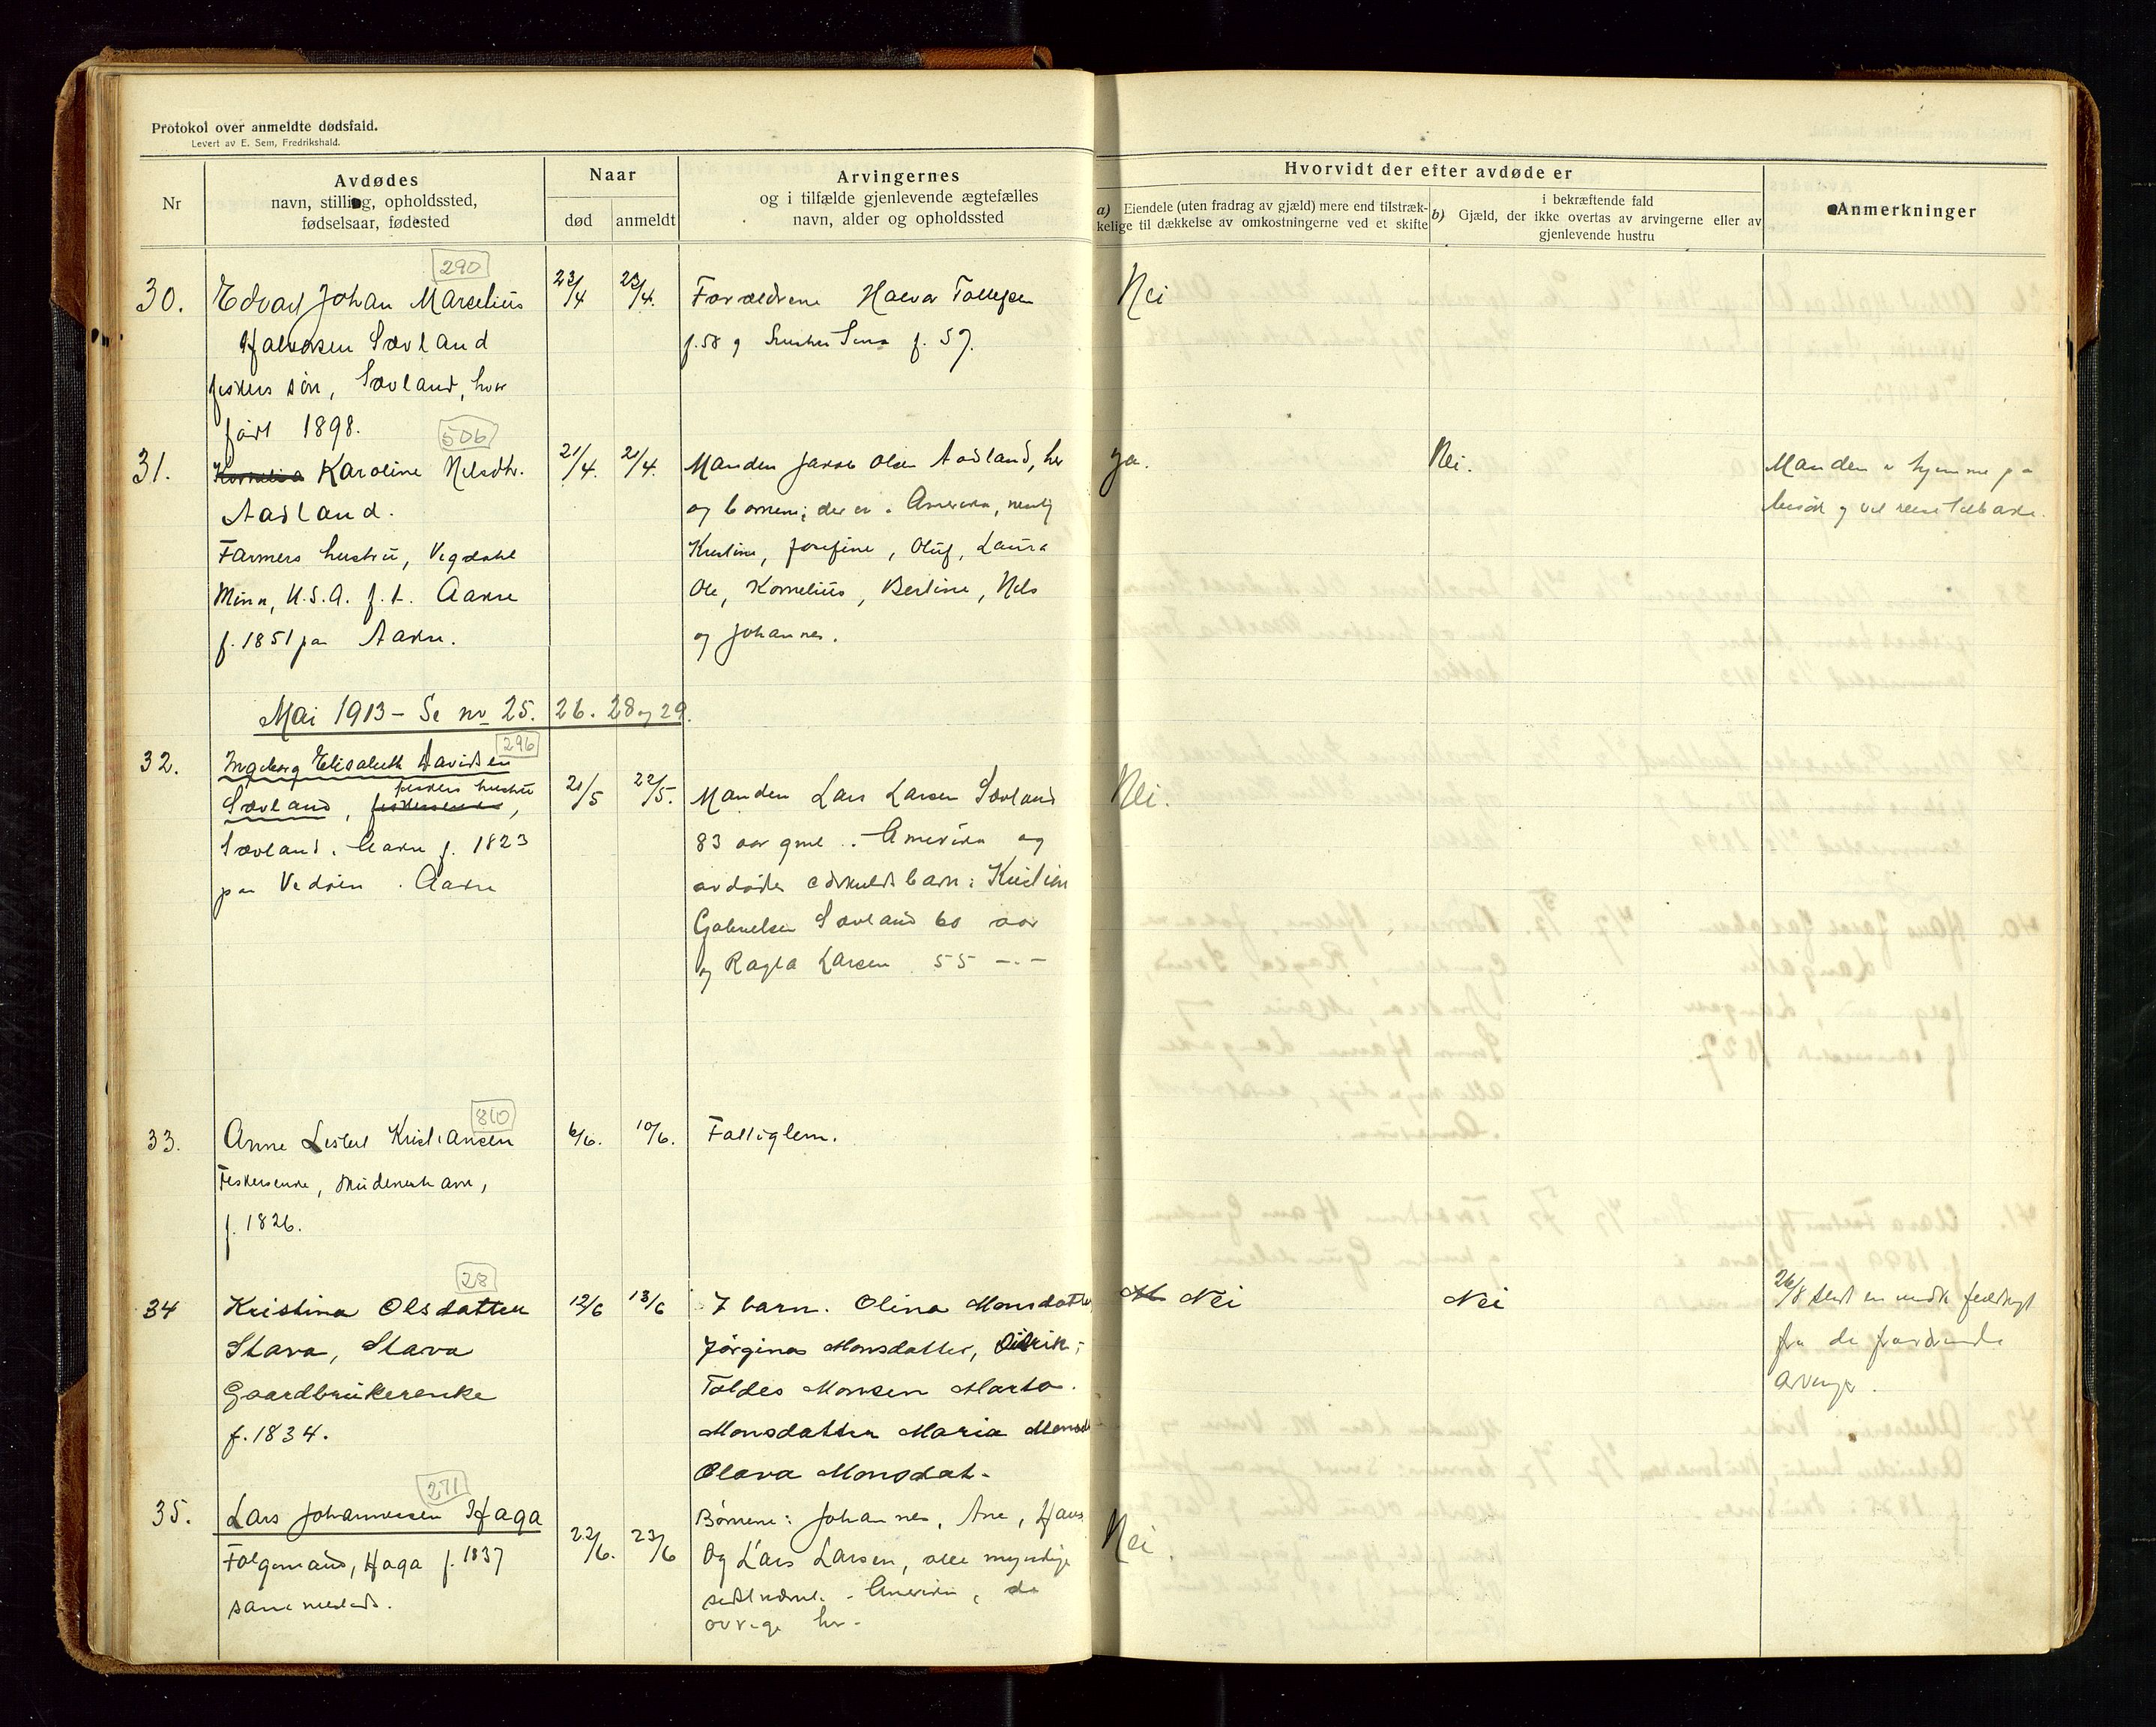 Protokol over anmeldte dødsfald.
Levert av E. Sem, Fredrikshald.
Nr
Avdødes
navn, stilling, opholdssted,
fødselsaar, fødested
Naar
død
anmeldt
Arvingernes
og i tilfælde gjenlevende ægtefælles
navn, alder og opholdssted
Hvorvidt der efter avdøde er
a) Eiendele (uten fradrag av gjæld) mere end tilstræk-
kelige til dækkelse av omkostningerne ved et skifte
i bekræftende fald
b) Gjæld, der ikke overtas av arvingerne eller av
gjenlevende hustru
Anmerkninger
290
30.
Edvart Johan Marselius
Halvorsen Sævland
fiskers søn, Sævland, hvor
født 1898.
23/4
23/4.
Forældrene Halvor Tollefsen
f. 58 og hustru Sina f. 57.
Nei
506
31.
Karoline Nelsdtr.
Aadland.
Farmers hustru, Vegdahl
Minn, U.S.A. f. t. Aakre
f. 1851 paa Aakre.
21/4.
21/4.
Manden Jakob Olsen Aadland, her
og børnene; der er i Amerika, nemlig
Kristine, Josefine, Oluf, Laura
Ole, Kornelius, Bertine, Nels
og Johannes.
ja.
Nei.
Manden er hjemme pa
besøk og vil reise tilbake.
Mai 1913 - Se nr 25. 26. 28 og 29.
296
32.
Ingeborg Elisabeth Davidsen
fiskers hustru
Sævland, fiskerenke,
Sævland i Aakre f. 1823
paa Vedøen i Aakre
21/5
22/5.
Manden Lars Larsen Sævland
83 aar gml i Amerika og
avdødes særkuldsbarn: Kristian
Gabrielsen Sævland 60 aar
og Ragla Larsen 55 -.-
Nei.
810
33.
Anne Lisbet Kristiansen
Fiskerenke, Skudeneshavn,
f. 1826.
6/6.
10/6.
Fattiglem.
28
34
Kristina Olsdatter
Stava, Stava
Gaardbrukerenke
f. 1834.
12/6
13/6
7 barn. Olina Monsdatter
Jørgina Monsdatter, Didrik
Toldes Monsen Marta
Monsdatter Maria Monsd
Olava Monsdat-
Nei
Nei
26/8
fra de
arvinger.
271
35.
Lars Johannessen Haga
Folgemand, Haga f. 1837
sammesteds.
22/6.
23/6
Børnene: Johannes, Ane, Hans
og Lars Larsen, alle myndige
sidstnævnte i Amerika, de
øvrige her.
Nei.